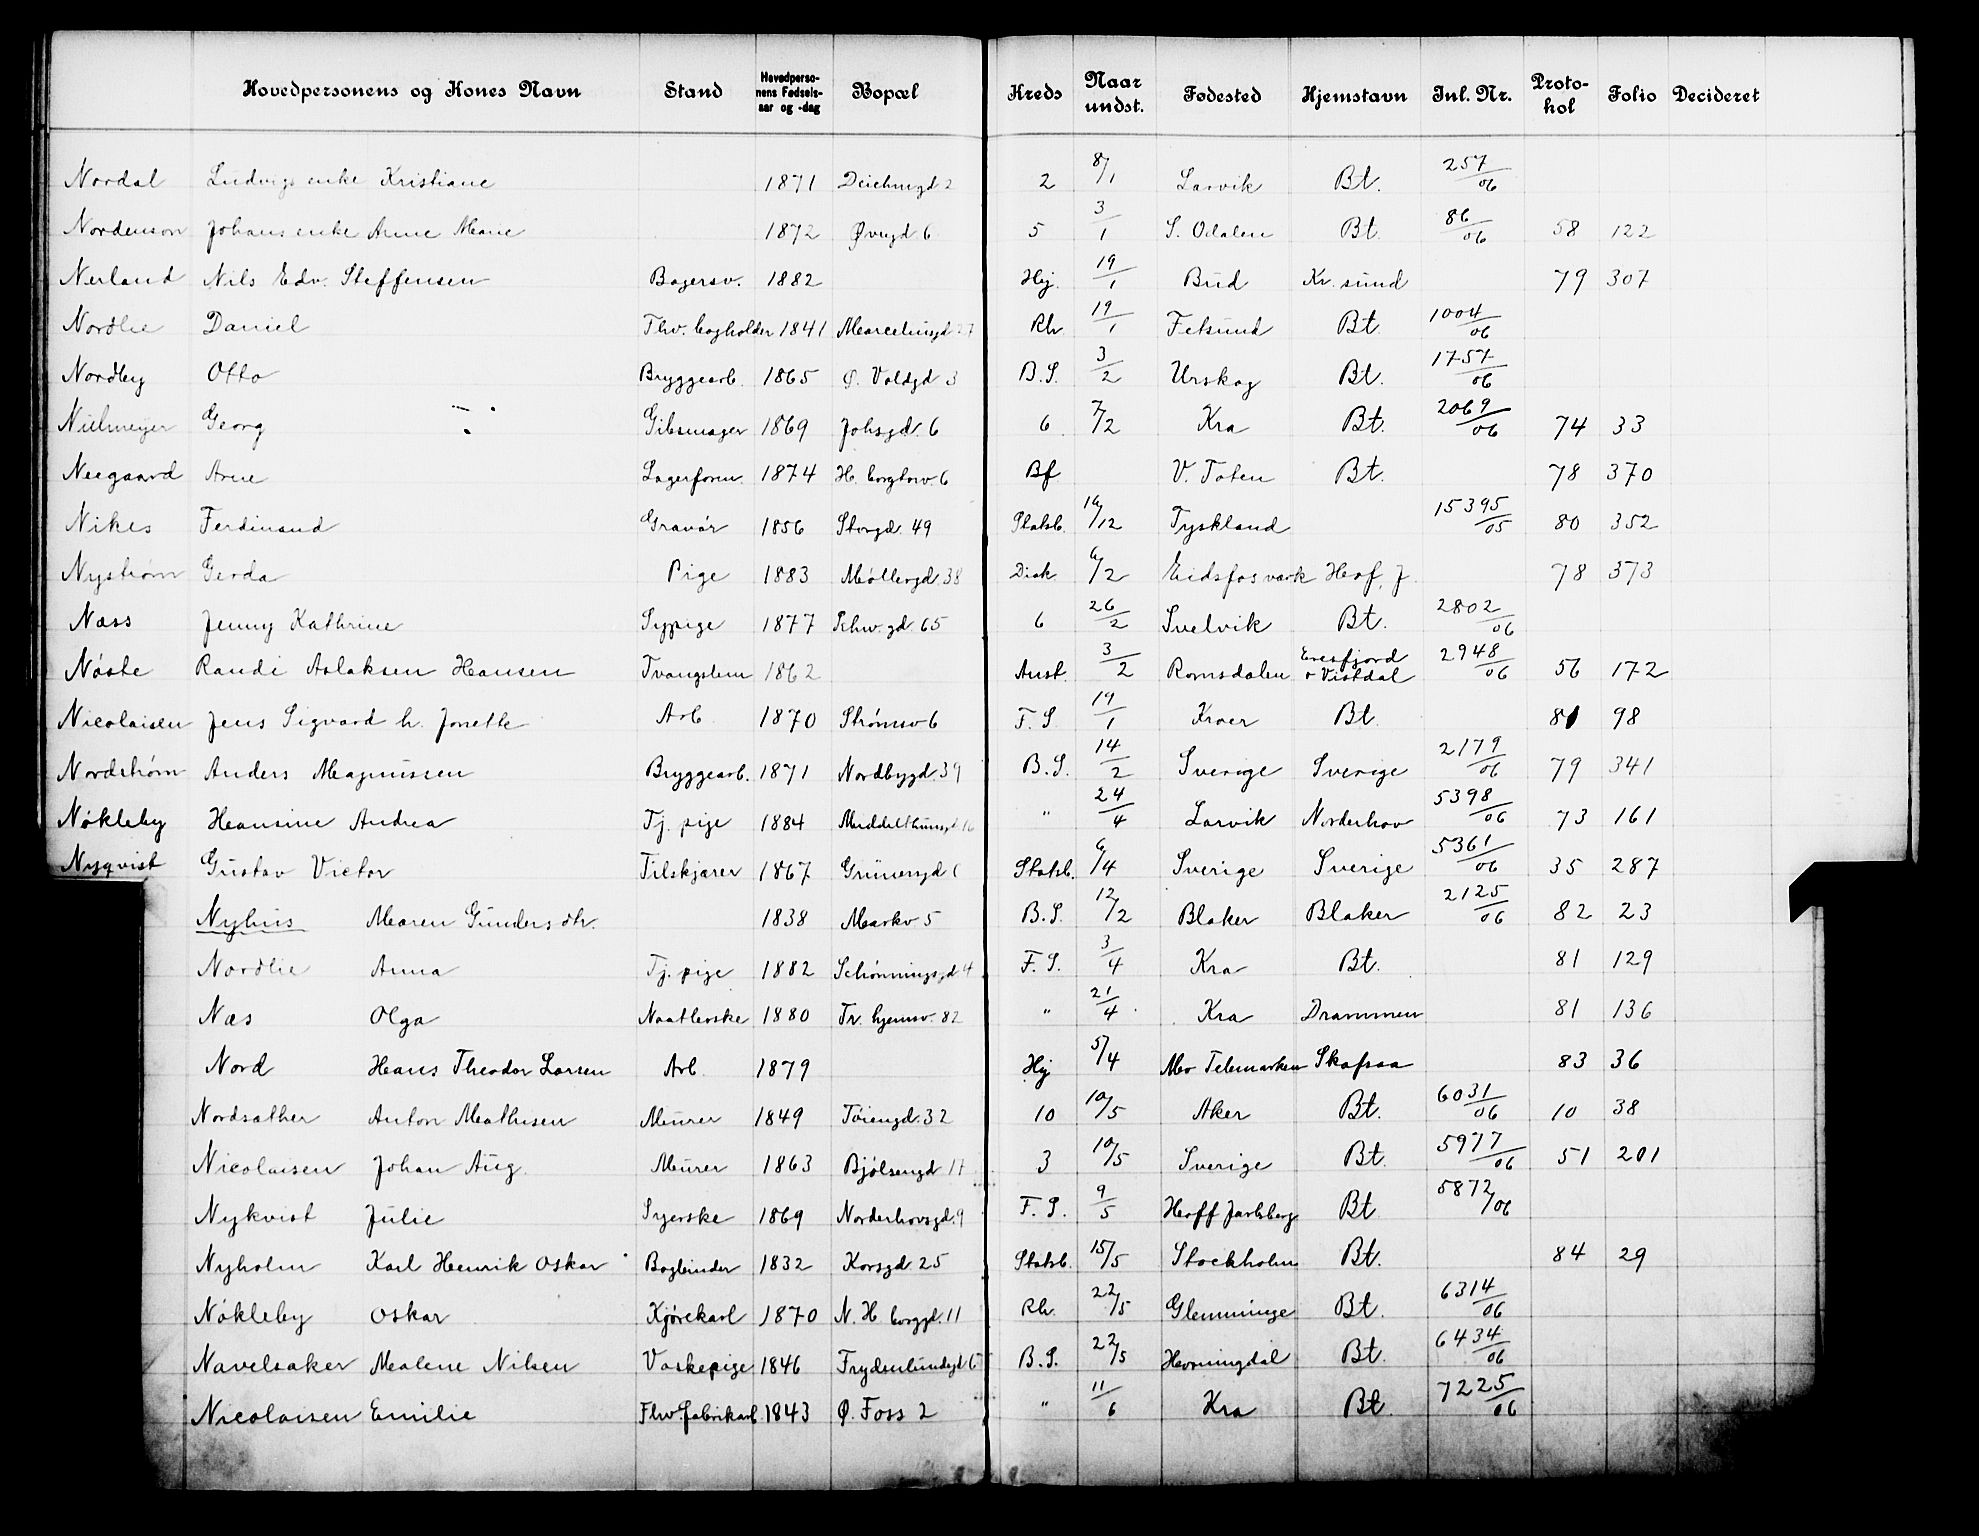 Hovedpersonens og Kones Navn Stand Hovedpersonens Fødselsaar og -dag Bopæl Kreds Naar undst. Fødested Hjemstavn Inl. Nr. Protokol Folio Decideret
Nordal Ludvigs enke Kristiane 1871 Deichmgd 2 2 8/1 Larvik Bt. 257/06
Nordenson Johans enke Anne Marie 1872 Øvregd. 6 5 3/1 S. Odalen Bt. 86/06 58 122
Nerland Nils Edv. Steffensen Bagersv. 1882 Hj. 19/1 Bud Kr. sund 79 307
Nordlie Daniel Fhv. bogholder 1841 Marcelinsgd 27 Rh 19/1 Fetsund Bt. 1004/06
Nordby Otto Bryggearb. 1865 Ø. Voldgd 3 B.S. 3/2 Urskog Bt. 1757/06
Georg Gibsmager 1869 Johsgd. 6 6 7/2 Kra Bt. 2069/06 74 33
Neegaard Arne Lagerform. 1874 H. borgtorv 6 Bf V. Toten Bt. 78 370
Nikes Ferdinand Gravør 1856 Storgd. 49 Statsb. /12 Tyskland 15395/05 80 352
Nystrøm Gerda Pige 1883 Møllergd. 38 Diak 6/2 Eidsfos værk Hof, J. 78 373
Næss Jenny Kathrine Sypige 1877 Schw. gd. 65 6 26/2 Svelvik Bt. 2802/06
Nøste Randi Aslaksen Hansen Tvangslem 1862 Anst. 3/2 Romsdalen Eresfjord o Vistdal 2948/06 56 172
Nicolaisen Jens Sigvard h. Jonette Arb. 1870 Strømsv 6 F.S. 19/1 Kroer Bt. 81 98
Nordstrøm Anders Magnussen Bryggearb. 1871 Nordbygd. 39 B.S. 14/2 Sverige Sverige 2179/06 79 341
Nøkleby Hansine Andrea Tj. pige 1884 Middelthunsgd 16 " 24/4 Larvik Norderhov 5398/06 73 161
Nyqvist Gustav Victor Filskjærer 1867 Grünersgd 6 Statsb. 6/4 Sverige Sverige 5361/06 35 287
Nyhus Maren Gundersdtr. 1838 Markv 5 B.S. 12/2 Blaker Blaker 2125/06 82 23
Nordlie Anna Tj. pige 1882 Schønningsgd 4 F.S. 3/4 Kra Bt. 81 129
Næs Olga Naatlerske 1880 Tr. hjemsv. 82 " 21/4 Kra Drammen 81 136
Nord Hans Theodor Larsen Arb. 1879 Hj 5/4 Mo Telemarken Skafsaa 83 36
Nordsæther Anton Mathisen Murer 1849 Tøiengd. 32 10 10/5 Aker Bt. 6031/06 10 38
Nicolaisen Johan Aug. Murer 1863 Bjølsengd 17 3 10/5 Sverige Bt. 5977/06 51 201
Nykvist Julie Syerske 1869 Norderhovsgd. 9 F.S. 9/5 Hoff Jarlsberg Bt. 5872/06
Nyholm Karl Henrik Oskar Bogbinder 1832 Korsgd 25 Statsb. 15/5 Stockholm Bt. 84 29
Nøkleby Oskar Kjørekarl 1870 N. H. borggd. 11 Rh. 22/5 Glemminge Bt. 6314/06
Navelsaker Malene Nilsen Vaskepige 1846 Frydenlundsgd 6 B.S. 22/5 Hornindal Bt. 6434/06
Nicolaisen Emilie Fhv. fabrikarb. 1843 Ø. Foss 2 " 11/6 Kra Bt. 7225/06